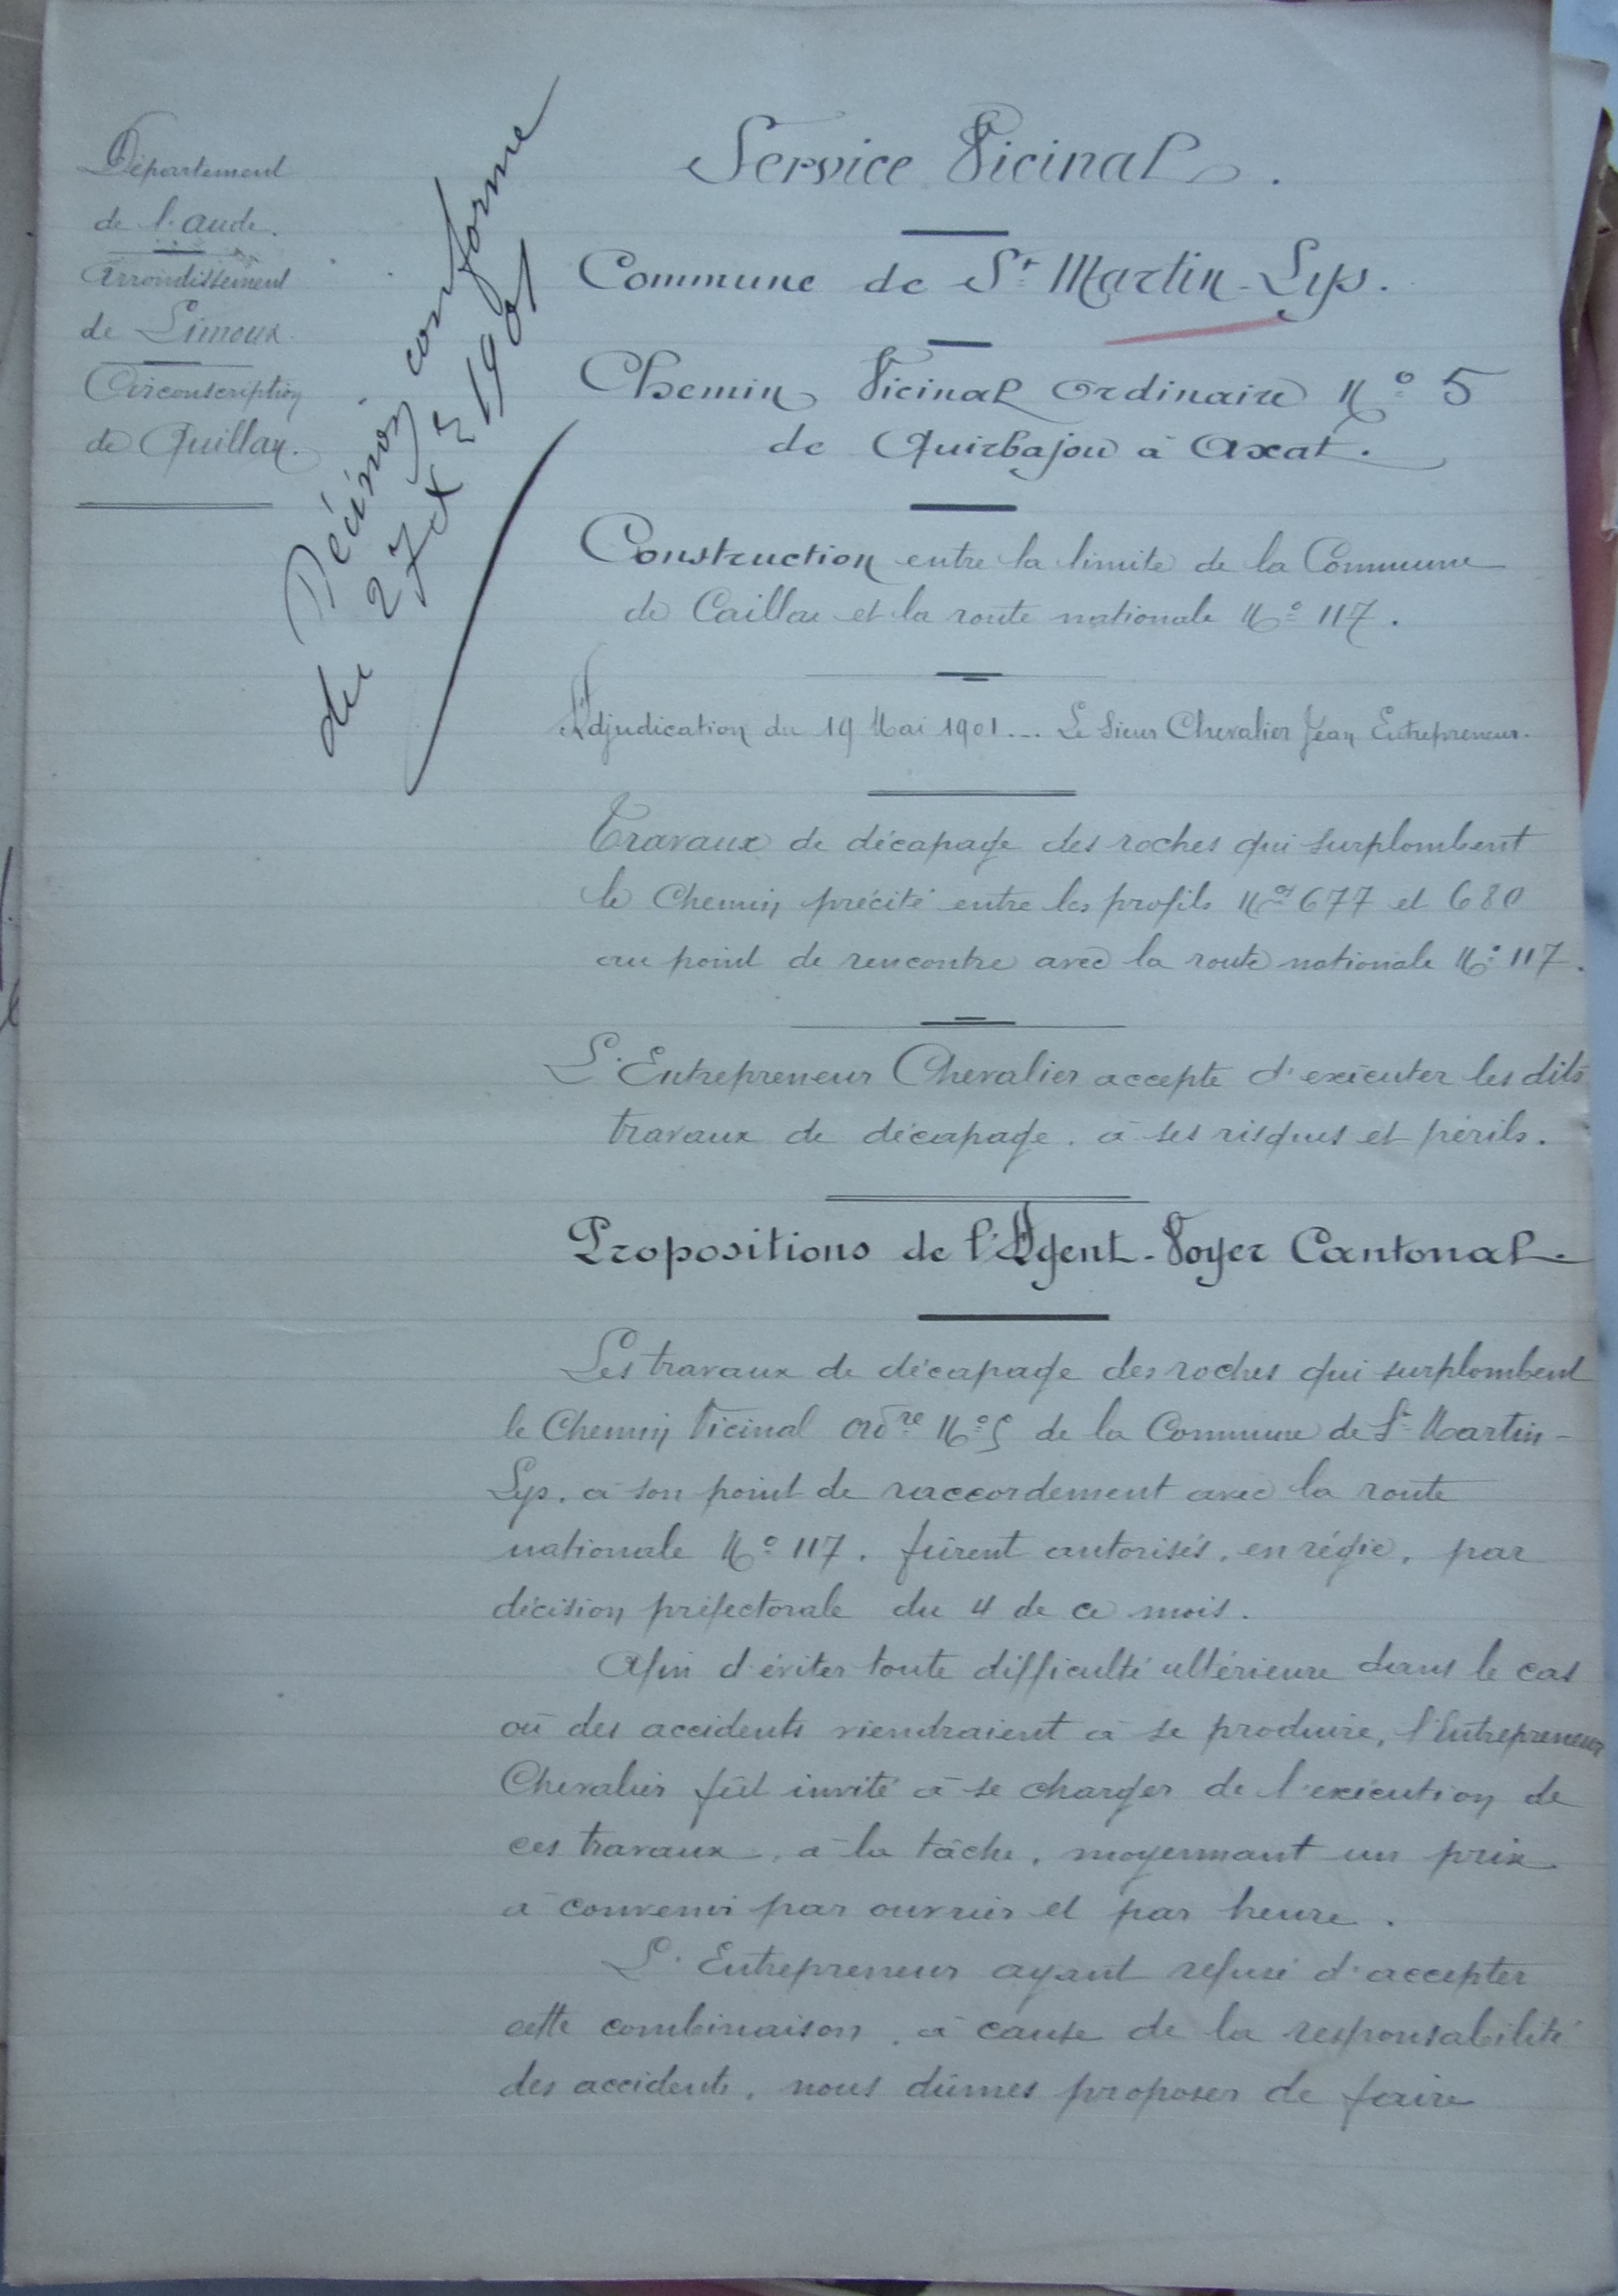 Département
de l'Aude.
Arrondissement
de Limoux.
Circonscription
de Quillan.
Décision conforme
du 27 Xbre 1901
Service Vicinal.
Commune de St Martin-Lys.
Chemin Vicinal Ordinaire No 5
de Quirbajou à Axat.
Construction entre la limite de la Commune
de Caillau et la route nationale No 117.
Adjudication du 19 Mai 1901... Le Sieur Chevalier Jean Entrepreneur.
Travaux de décapage des roches qui surplombent
le Chemin précité entre les profils Nos 677 et 680
au point de rencontre avec la route nationale No 117.
L'Entrepreneur Chevalier accepte d'exécuter les dits
travaux de décapage, à ses risques et périls.
Propositions de l'Agent-Voyer Cantonal.
Les travaux de décapage des roches qui surplombent
le Chemin Vicinal ordre No 5 de la Commune de St Martin-
Lys, à son point de raccordement avec la route
nationale No 117, fûrent autorisés, en régie, par
décision préfectorale du 4 de ce mois.
Afin d'éviter toute difficulté ultérieure dans le cas
où des accidents viendraient à se produire, l'Entrepreneur
Chevalier fût invité à se charger de l'exécution de
ces travaux, à la tâche, moyennant un prix
à convenir par ouvrier et par heure.
L'Entrepreneur ayant refusé d'accepter
cette combinaison, à cause de la responsabilité
des accidents, nous dûmes proposer de faire